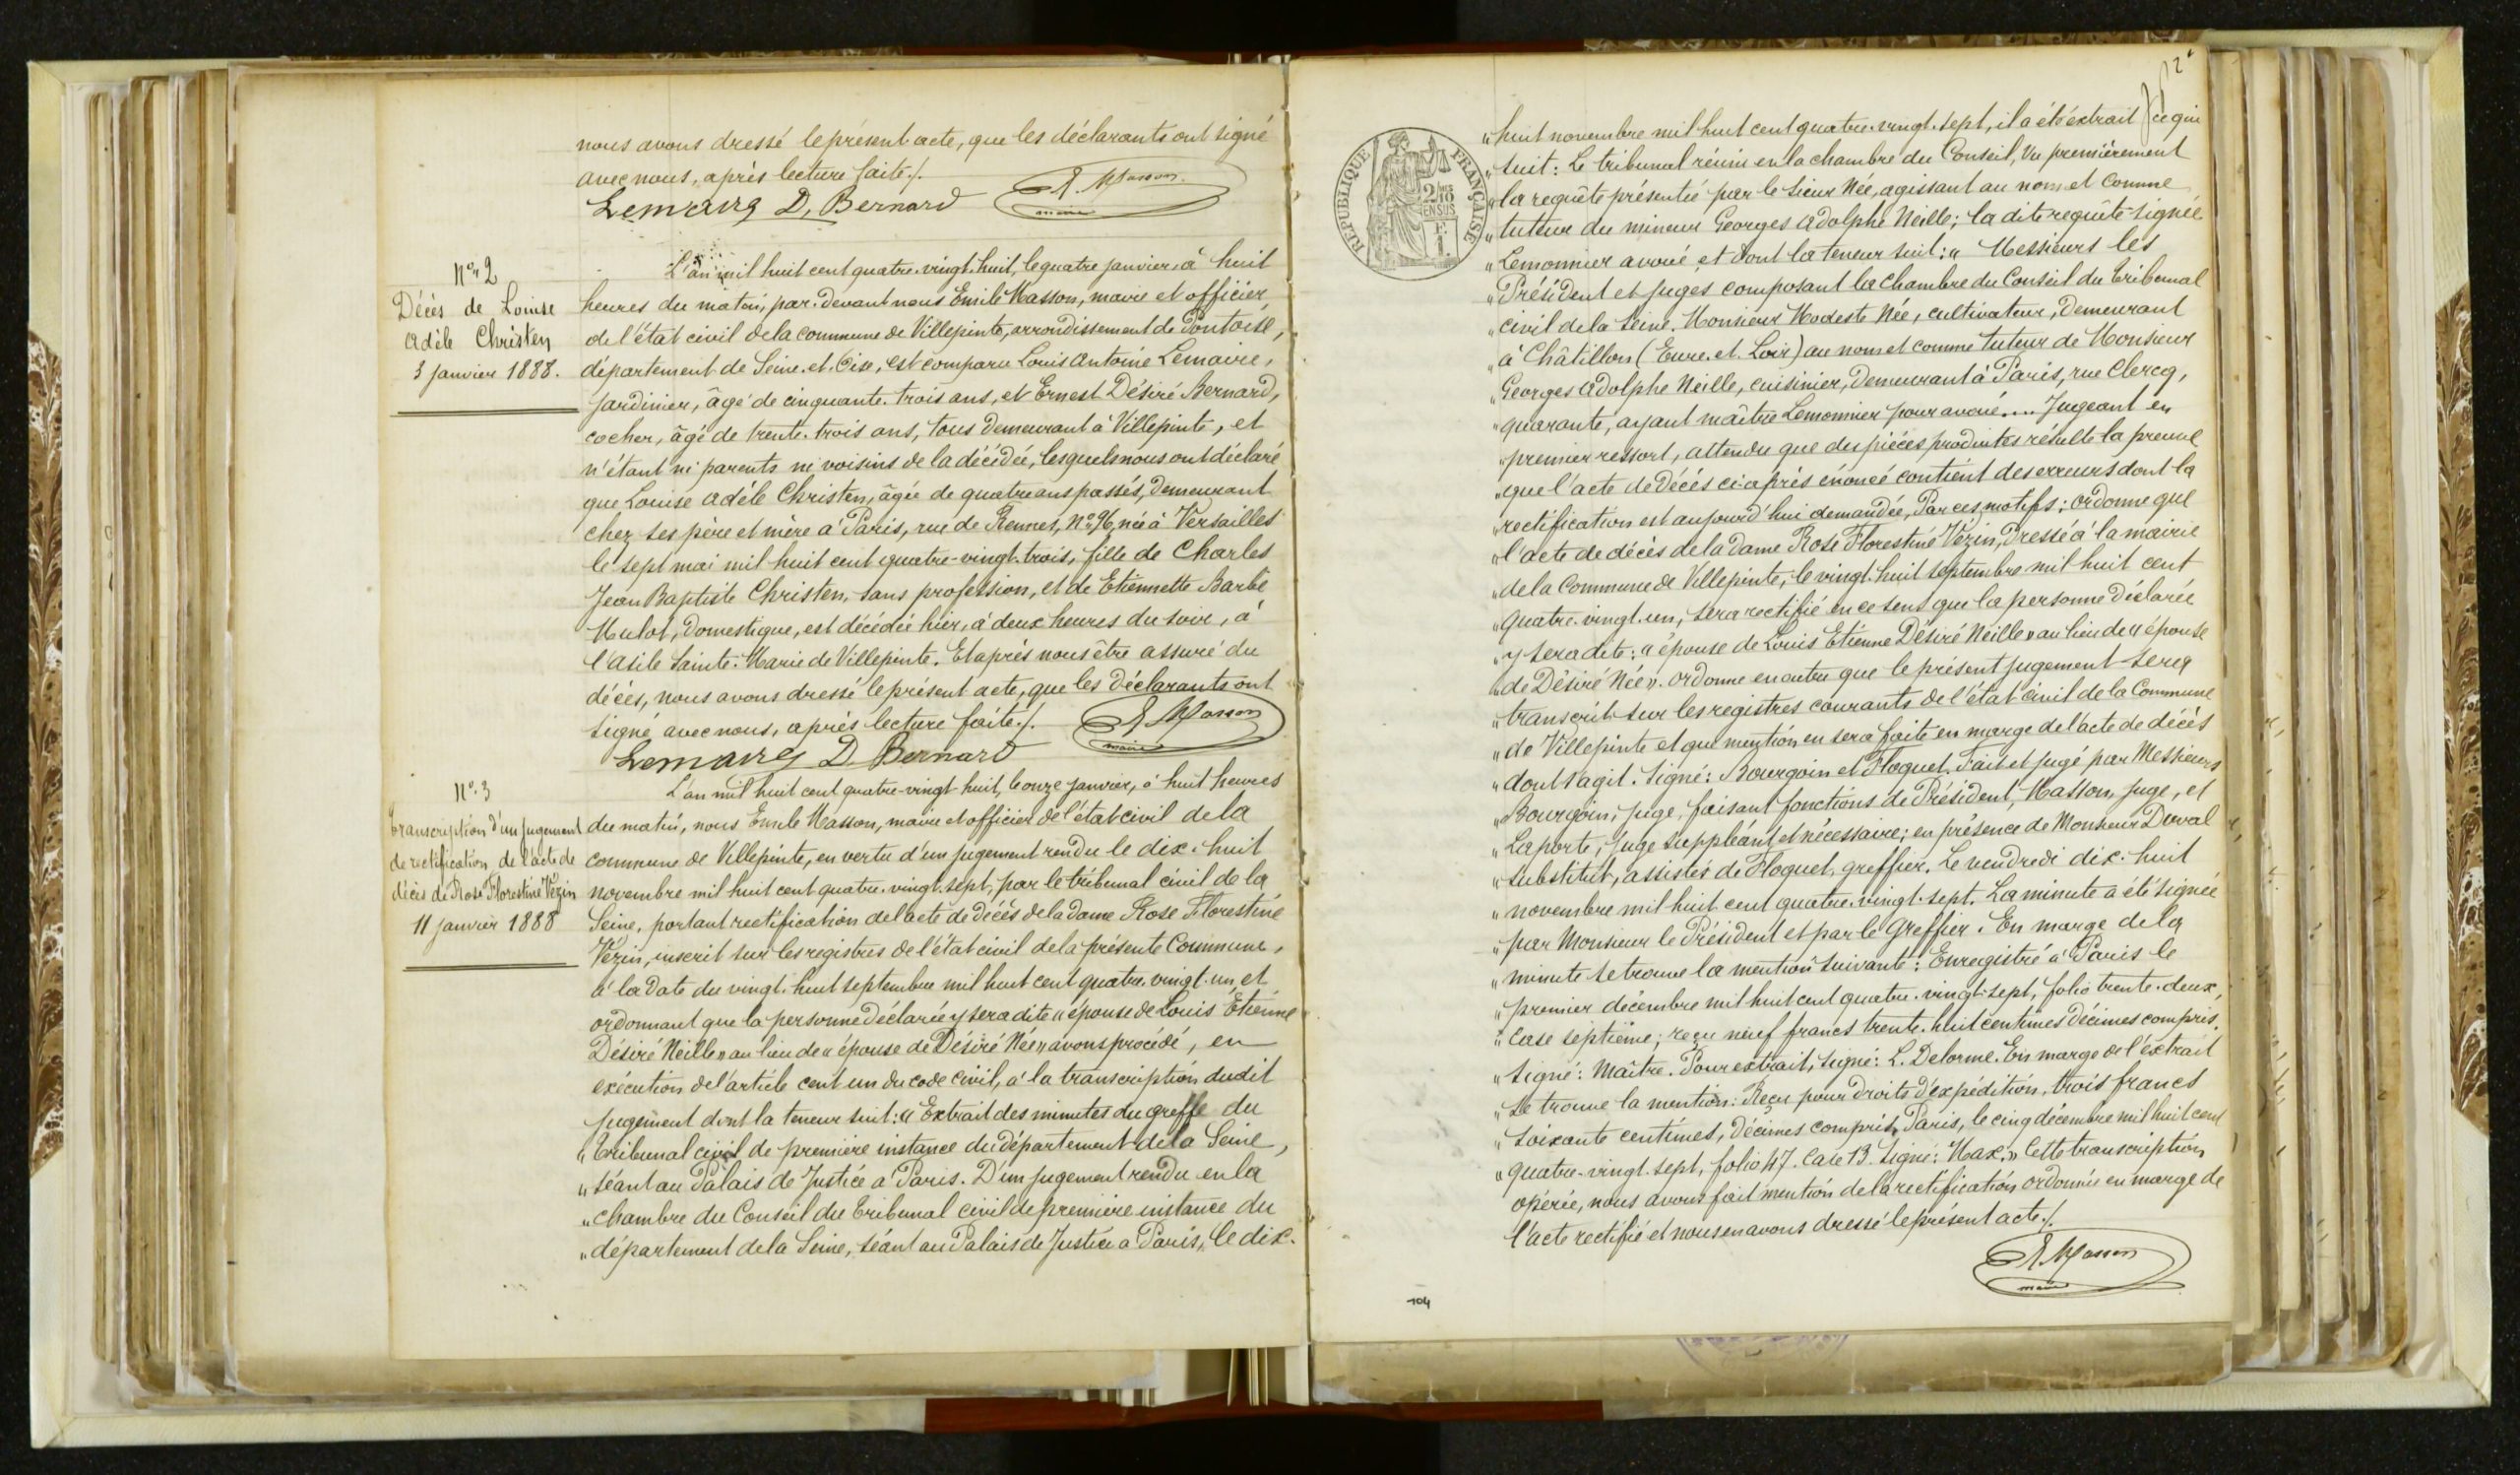 nous avons dressé le présent acte, que les déclarants ont signé
avec nous, après lecture faite./.
Lemaire D, Bernard E. Masson
maire
N° 2
Décès de Louise
Adèle Christen
3 janvier 1888.
L'an mil huit cent quatre-vingt-huit, le quatre janvier, à huit
heures du matin, par-devant nous Emile Masson, maire et officier
de l'état civil de la commune de Villepinte, arrondissement de Pontoise,
département de Seine-et-Oise, est comparu Louis Antoine Lemaire,
jardinier, âgé de cinquante-trois ans, et Ernest Désiré Bernard,
cocher, âgé de trente-trois ans, tous demeurant à Villepinte, et
n'étant ni parents ni voisins de la décédée, lesquels nous ont déclaré
que Louise Adèle Christen, âgée de quatre ans passés, demeurant
chez ses père et mère à Paris, rue de Rennes, N° 96, née à Versailles
le sept mai mil huit cent quatre-vingt-trois, fille de Charles
Jean Baptiste Christen, sans profession, et de Etiennette Barbe
Mulot, domestique, est décédée hier, à deux heures du soir, à
l'asile Sainte-Marie de Villepinte. Et après nous être assuré du
décès, nous avons dressé le présent acte, que les déclarants ont
signé avec nous, après lecture faite./. E Masson
maire
Lemaire D. Bernard
N° 3
Transcription d'un jugement
de rectification de l'acte de
décès de Rose Florestine Vézin
11 janvier 1888
L'an mil huit cent quatre-vingt-huit, le onze janvier, à huit heures
du matin, nous Emile Masson, maire et officier de l'état civil de la
commune de Villepinte, en vertu d'un jugement rendu le dix-huit
novembre mil huit cent quatre-vingt-sept, par le tribunal civil de la
Seine, portant rectification de l'acte de décès de la dame Rose Florestine
Vézin, inscrit sur les registres de l'état civil de la présente Commune,
à la date du vingt-huit septembre mil huit cent quatre-vingt-un, et
ordonnant que la personne déclarée y sera dite « épouse de Louis Étienne
Désiré Neille » au lieu de « épouse de Désiré Née » avons procédé, en
exécution de l'article cent un du code civil, à la transcription dudit
jugement dont la teneur suit: « Extrait des minutes du greffe du
" Tribunal civil de première instance du département de la Seine,
" séant au Palais de Justice à Paris. D'un jugement rendu en la
" chambre du Conseil du Tribunal civil de première instance du
" département de la Seine, séant au Palais de Justice à Paris, le dix-
2
RÉPUBLIQUE FRANÇAISE
" huit novembre mil huit cent quatre-vingt-sept, il a été extrait ce qui
" suit: Le tribunal réuni en la chambre du Conseil, Vu premièrement
" la requête présentée par le sieur Née, agissant au nom et comme
" tuteur du mineur Georges Adolphe Neille; la dite requête signée
" Lemonnier avoué et dont la teneur suit: « Messieurs les
" Président et juges composant la chambre du Conseil du Tribunal
" civil de la Seine. Monsieur Modeste Née, cultivateur, demeurant
" à Châtillon (Eure-et-Loir) au nom et comme tuteur de Monsieur
" Georges Adolphe Neille, cuisinier, demeurant à Paris, rue Clercq,
" quarante, ayant maître Lemonnier pour avoué.... Jugeant en
" premier ressort, attendu que des pièces produites résulte la preuve
" que l'acte de décès ci-après énoncé contient des erreurs dont la
" rectification est aujourd'hui demandée, Par ces motifs: ordonne que
" l'acte de décès de la dame Rose Florestine Vézin, dressé à la mairie
" de la Commune de Villepinte, le vingt-huit septembre mil huit cent
" quatre-vingt-un, sera rectifié en ce sens que la personne déclarée
" y sera dite: « épouse de Louis Etienne Désiré Neille » au lieu de « épouse
" de Désiré Née ». ordonne en outre que le présent jugement sera
" transcrit sur les registres courants de l'état civil de la Commune
" de Villepinte et que mention en sera faite en marge de l'acte de décès
" dont s'agit. Signé: Bourgoin et Floquet. Fait et jugé par Messieurs
" Bourgoin, juge, faisant fonctions de Président, Masson, juge, et
" Laporte, juge suppléant et nécessaire; en présence de Monsieur Duval
" substitut, assistés de Floquet, greffier. Le vendredi dix-huit
" novembre mil huit cent quatre-vingt-sept. La minute a été signée
" par Monsieur le Président et par le Greffier. En marge de la
" minute se trouve la mention suivante: Enregistré à Paris le
" premier décembre mil huit cent quatre-vingt-sept, folio trente-deux,
" case septième; reçu neuf francs trente-huit centimes décimes compris.
" signé: Maître. Pour extrait, signé: L. Delorme. En marge de l'extrait
" se trouve la mention: Reçu pour droits d'expédition, trois francs
" soixante centimes, décimes compris, Paris, le cinq décembre mil huit cent
" quatre-vingt-sept, folio 47. Case 13. signé: Max. » Cette transcription
opérée, nous avons fait mention de la rectification ordonnée en marge de
l'acte rectifié et nous en avons dressé le présent acte./.
E Masson
maire
104